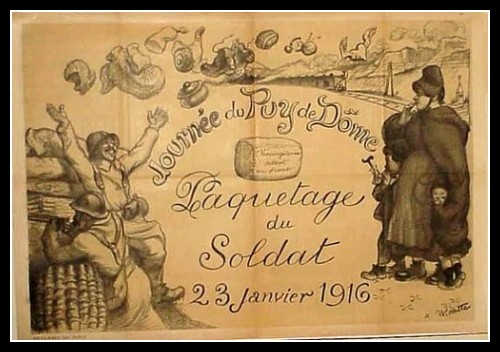 Journée du Puy de Dôme
Paquetage
du
Soldat
23 Janvier 1916
A. Willette